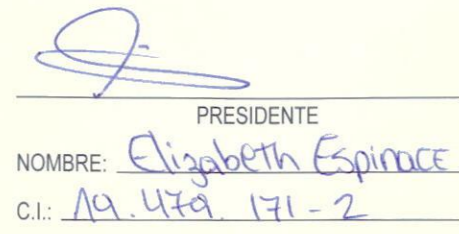 PRESIDENTE
NOMBRE: Elizabeth Espinace
C.I.: 19.479.171-2